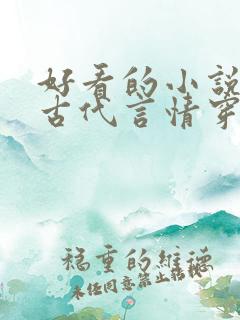 好看的小说
古代言情穿
稳重的维德
未经同意禁止转载